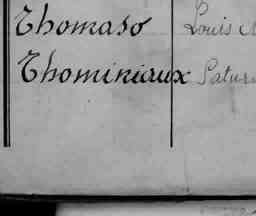 Thomaso Louis
Thominiaux Satur